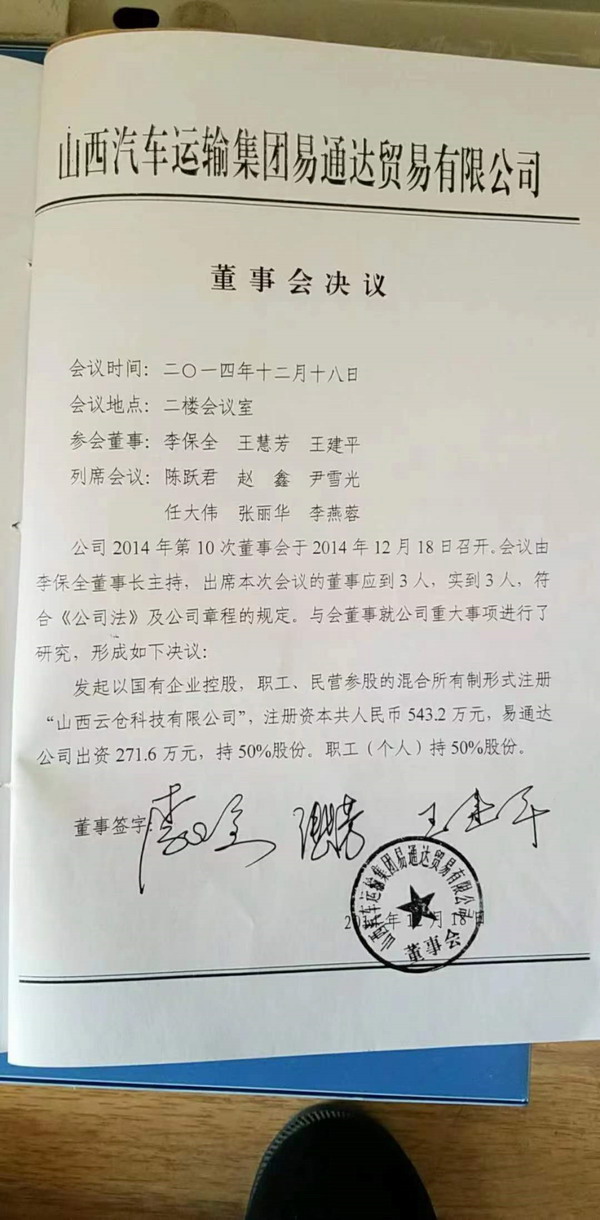 山西汽车运输集团易通达贸易有限公司
董事会决议
会议时间：二〇一四年十二月十八日
会议地点：二楼会议室
参会董事：李保全 王慧芳 王建平
列席会议：陈跃君 赵鑫 尹雪光
任大伟 张丽华 李燕蓉
公司2014年第10次董事会于2014年12月18日召开。会议由
李保全董事长主持，出席本次会议的董事应到3人，实到3人，符
合《公司法》及公司章程的规定。与会董事就公司重大事项进行了
研究，形成如下决议：
发起以国有企业控股，职工、民营参股的混合所有制形式注册
“山西云仓科技有限公司”，注册资本共人民币543.2万元，易通达
公司出资271.6万元，持50%股份。职工（个人）持50%股份。
董事签字：
王建平
山西汽车运输集团易通达贸易有限公司
董事会